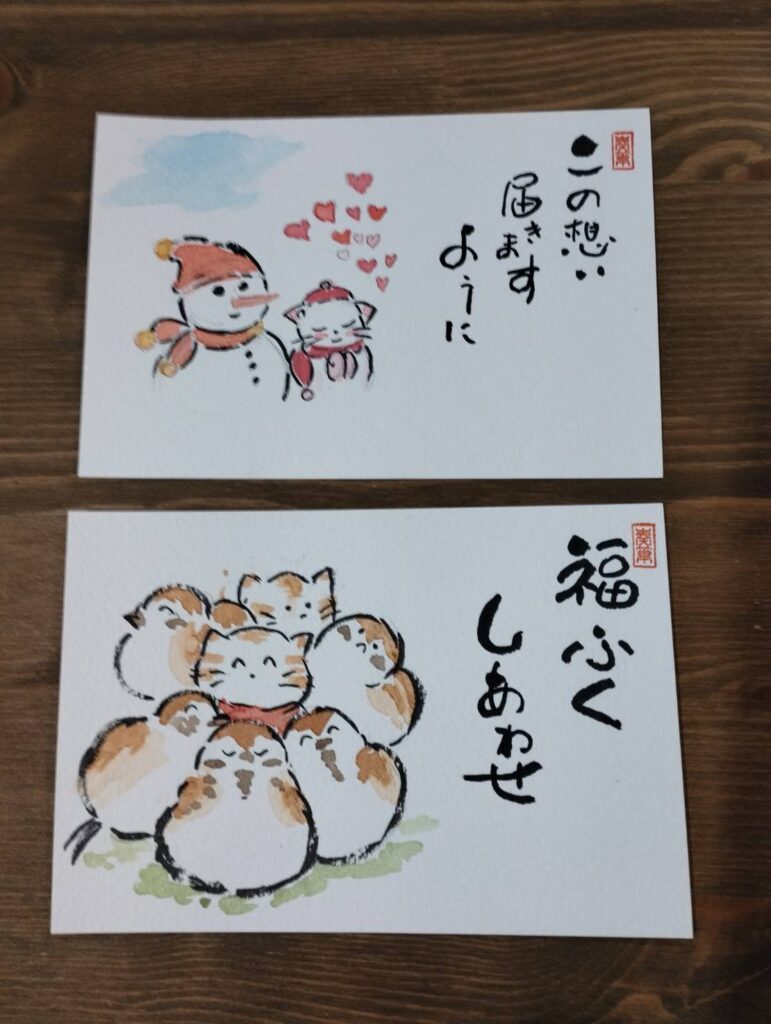 この想い
届きます
ように
福ふく
しあわせ